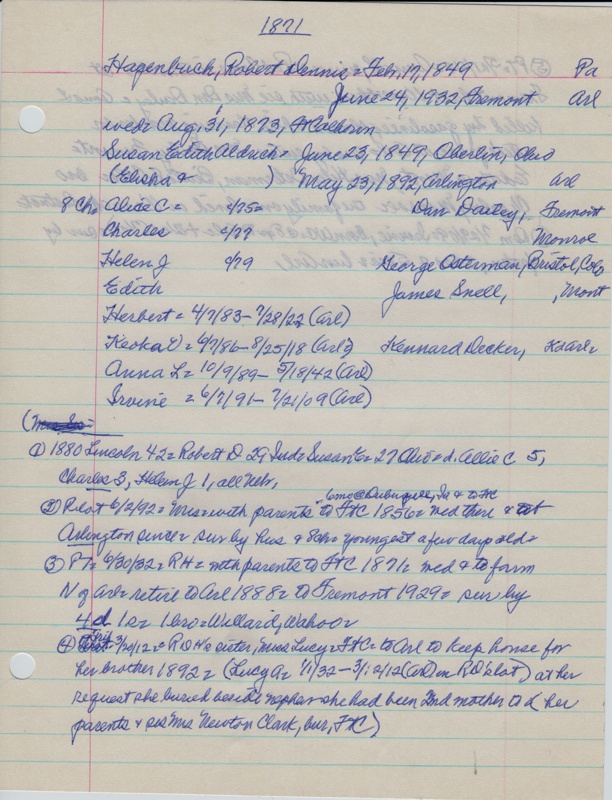 1871
Hagenbuch, Robert Dennis = Feb, 17, 1849 Pa
June 24, 1932, Fremont Arl
wed = Aug, 31, 1873, Ft Calhoun
Susan Edith Aldrich = June 23, 1849, Oberlin, Ohio
(Elisha & ) May 23, 1892, Arlington Arl
8 Ch = Alice C = 4/75 = Dan Dautey, Fremont
Charles 4/77 Monroe
Helen J 4/79 George Osterman, Bristol, Colo
Edith James Snell, , Mont
Herbert = 4/7/83 - 7/28/22 (Arl)
Keoka V = 6/7/86 - 8/25/18 (Arl) Kennard Decker,
Anna L = 10/9/89 - 5/18/42 (Arl)
Irvine = 6/7/91 - 7/21/09 (Arl)
① 1880 Lincoln 42 = Robert D 29 Ind = Susan E = 27 Ohio = d. Allie C 5,
Charles 3, Helen J 1, all Neb,
6 mo @ Dubuque, Ia & to FtC
② Pilot 6/2/92 = Mrs = with parents to FtC 1856 = wed there & to
Arlington since = sur by hus & 8 ch = youngest a few days old =
③ FT = 6/30/32 = RH = with parents to FtC 1871 = wed & to farm
N of Arl = retire to Arl 1888 = to Fremont 1929 = sur by
4 d 1 s = 1 bro = Willard, Wahoo =
④ 3/20/12 = R D H's sister, Miss Lucy = FtC = to Arl to keep house for
her brother 1892 = (Lucy A = 1/1/32 - 3/12/12 (Arl) on RD's lot) at her
request she buried beside nephew she had been 2nd mother to & her
parents & sis Mrs Newton Clark, bur, FtC)